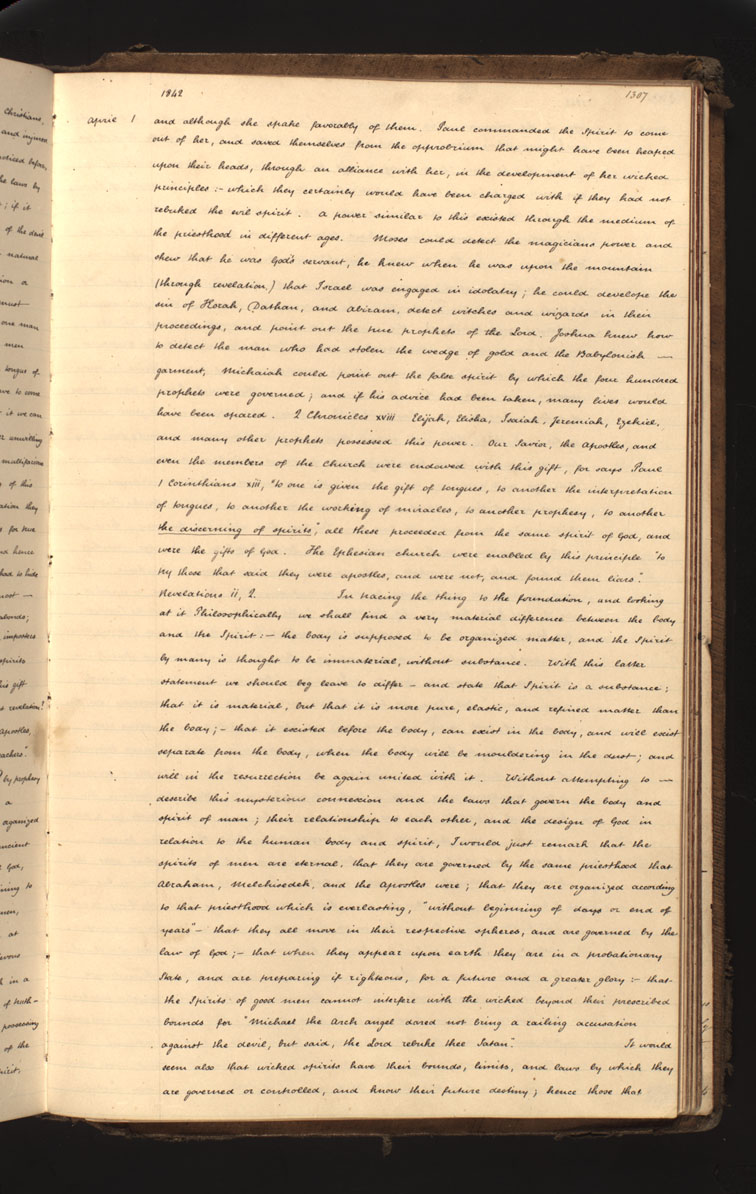 1842 1307
April 1 and although she spake favorably of them. Paul commanded the Spirit to come
out of her, and saved themselves from the opprobrium that might have been heaped
upon their heads, through an alliance with her, in the development of her wicked
principles:– which they certainly would have been charged with if they had not
rebuked the evil spirit. A power similar to this existed through the medium of
the priesthood in different ages. Moses could detect the magicians power and
shew that he was God's servant, he knew when he was upon the mountain
(through revelation,) that Israel was engaged in idolatry; he could develope the
sin of Korah, Dathan, and Abiram, detect witches and wizards in their
proceedings, and point out the true prophets of the Lord. Joshua knew how
to detect the man who had stolen the wedge of gold and the Babylonish —
garment, Michaiah could point out the false spirit by which the four hundred
prophets were governed; and if his advice had been taken, many lives would
have been spared. 2 Chronicles xviii Elijah, Elisha, Isaiah, Jeremiah, Ezekiel,
and many other prophets possessed this power. Our Savior, the Apostles, and
even the members of the church were endowed with this gift, for says Paul
1 Corinthians xiii, "to one is given the gift of tongues, to another the interpretation
of tongues, to another the working of miracles, to another prophesy, to another
the discerning of spirits", all these proceeded from the same spirit of God, and
were the gifts of God. The Ephesian church were enabled by this principle "to
try those that said they were apostles, and were not, and found them liars".
Revelations ii, 2. In tracing the thing to the foundation, and looking
at it Philosophically we shall find a very material difference between the body
and the Spirit:– the body is supposed to be organized matter, and the Spirit
by many is thought to be immaterial, without substance. With this latter
statement we should beg leave to differ – and state that Spirit is a substance;
that it is material, but that it is more pure, elastic, and refined matter than
the body;– that it existed before the body, can exist in the body, and will exist
separate from the body, when the body will be mouldering in the dust; and
will in the resurrection be again united with it. Without attempting to —
describe this mysterious connexion and the laws that govern the body and
spirit of man; their relationship to each other, and the design of God in
relation to the human body and spirit, I would just remark that the
spirits of men are eternal, that they are governed by the same priesthood that
Abraham, Melchisedek, and the Apostles were; that they are organized according
to that priesthood which is everlasting, "without beginning of days or end of
years"– that they all move in their respective spheres, and are governed by the
law of God;– that when they appear upon earth they are in a probationary
state, and are preparing if righteous, for a future and a greater glory:– that
the Spirits of good men cannot interfere with the wicked beyond their prescribed
bounds for "Michael the Arch angel dared not bring a railing accusation
against the devil, but said, the Lord rebuke thee Satan". It would
seem also that wicked spirits have their bounds, limits, and laws by which they
are governed or controlled, and know their future destiny; hence those that